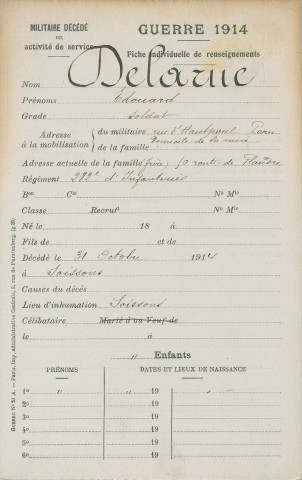 MILITAIRE DÉCÉDÉ
EN
activité de service
GUERRE 1914
Fiche individuelle de renseignements
Nom Delarue
Prénoms Edouard
Grade Soldat
Adresse à la mobilisation { du militaire rue d'Hautpoul Paris
de la famille Domicile de sa mère
Adresse actuelle de la famille (frère) route de Flandre
Régiment 282e d'Infanterie
Bon Cie No Mle
Classe Recrut No Mle
Né le 18 à
Fils de et de
Décédé le 31 Octobre 1914
à Soissons
Causes du décès
Lieu d'inhumation Soissons
Célibataire Marié à ou Veuf de
le à
" Enfants
PRÉNOMS DATES ET LIEUX DE NAISSANCE
1o " " 19 "
2o 19
3o 19
4o 19
5o 19
6o 19